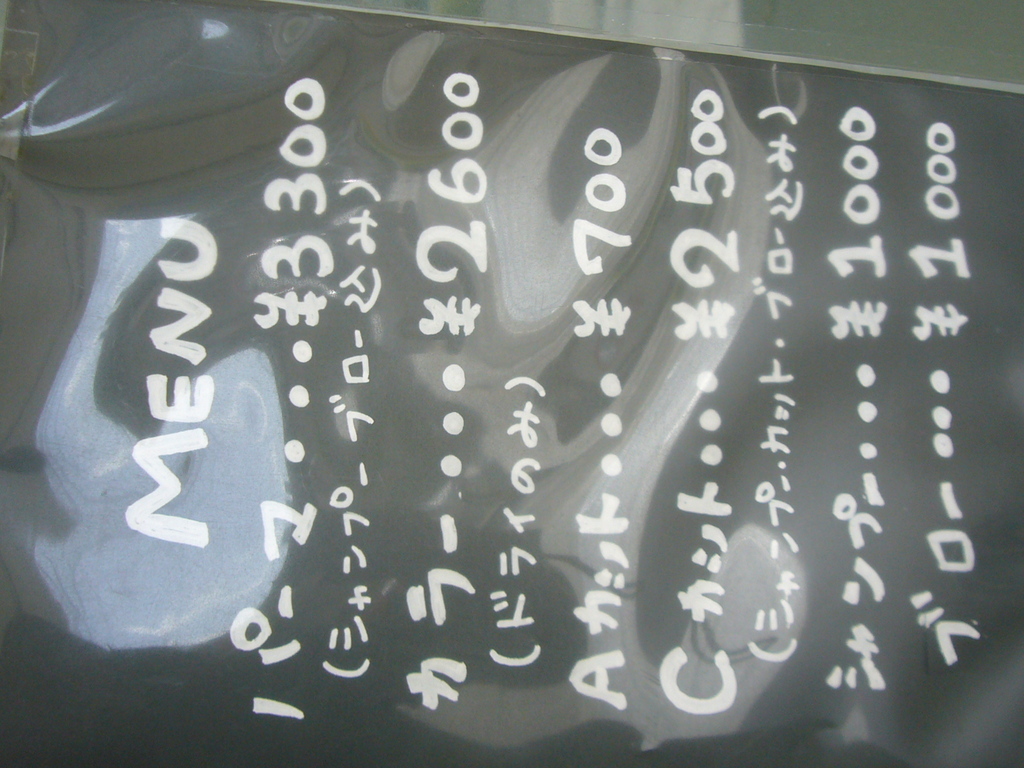 MENU
パーマ・・・¥3300
(シャンプー ブロー込み)
カラー・・・¥2600
(ドライのみ)
Aカット・・・¥700
Cカット・・・¥2500
(シャンプー・カット・ブロー込み)
シャンプー・・・¥1000
ブロー・・・¥1000